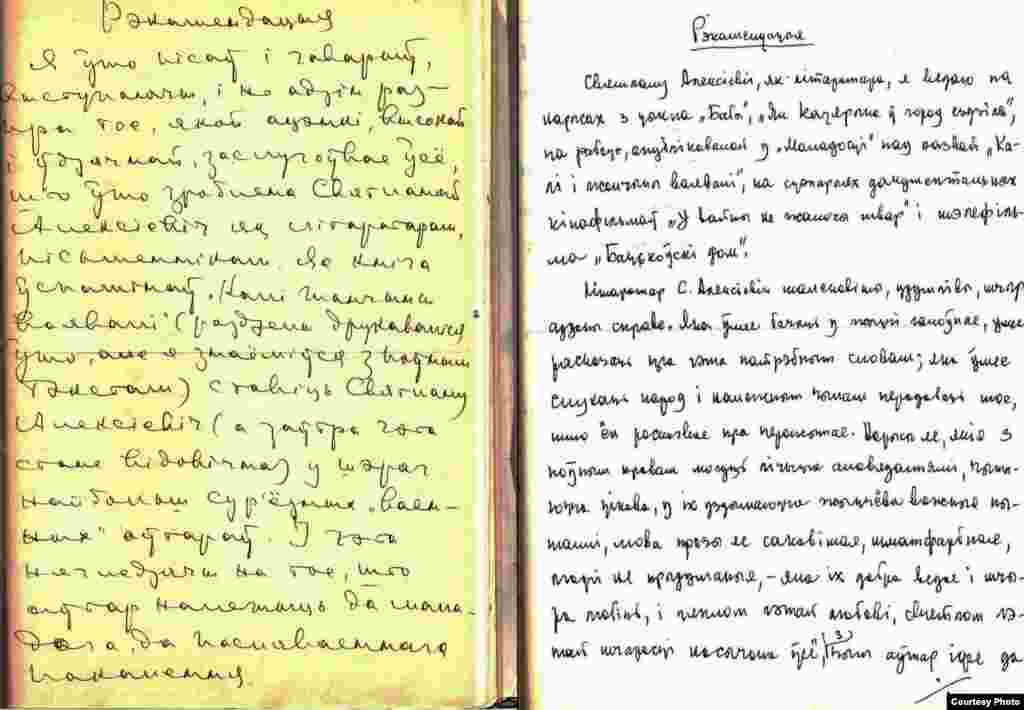 Рэкамендацыя
Я ўжо пісаў і гаварыў,
выступаючы, і не адзін раз
пра тое, якой ацэнкі, высокай
і ўдзячнай, заслугоўвае ўсё,
што ўжо зроблена Святланай
Алексіевіч як літаратарам,
пісьменнікам. Яе кніга
ўспамінаў „Калі жанчыны
ваявалі“ (раздзелы друкаваліся
ўжо, але я знаёміўся з поўным
тэкстам) ставіць Святлану
Алексіевіч (а заўтра гэта
стане відовічна) у шэраг
найбольш сур'ёзных „ваен-
ных“ аўтараў. І гэта
нягледзячы на тое, што
аўтар належыць да мала-
дога, да пасляваеннага
пакалення.
Рэкамендацыя
Святлану Алексіевіч, як літаратара, я ведаю па
нарысах з цыкла „Бабы“, „Як Качэргіна ў горад ездзіла“,
па рабоце, апублікаванай у „Маладосці“ пад назвай „Ка-
лі і жанчыны ваявалі“, па сцэнарыях дакументальных
кінафільмаў „У вайны не жаночы твар“ і тэлефіль-
ма „Бацькоўскі дом“.
Літаратар С. Алексіевіч таленавіты, удумлівы, шчыра
адданы справе. Яна ўмее бачыць у жыцці галоўнае, умее
расказаць пра гэта патрэбным словам; яна ўмее
слухаць народ і належным чынам перадаваць тое,
што ён расказвае пра перажытае. Нарысы яе, якія з
поўным правам могуць лічыцца апавяданнямі, чыта-
юцца цікава, у іх уздымаюцца жыццёва важныя пы-
танні, мова прозы яе сакавітая, шматфарбная,
людзі не прыдуманыя, – яна іх добра ведае і шчы-
ра любіць, і цяплом гэтай любові, святлом гэ-
тай шчырасці насычана ўсё, з чым аўтар ідзе да
Courtesy Photo